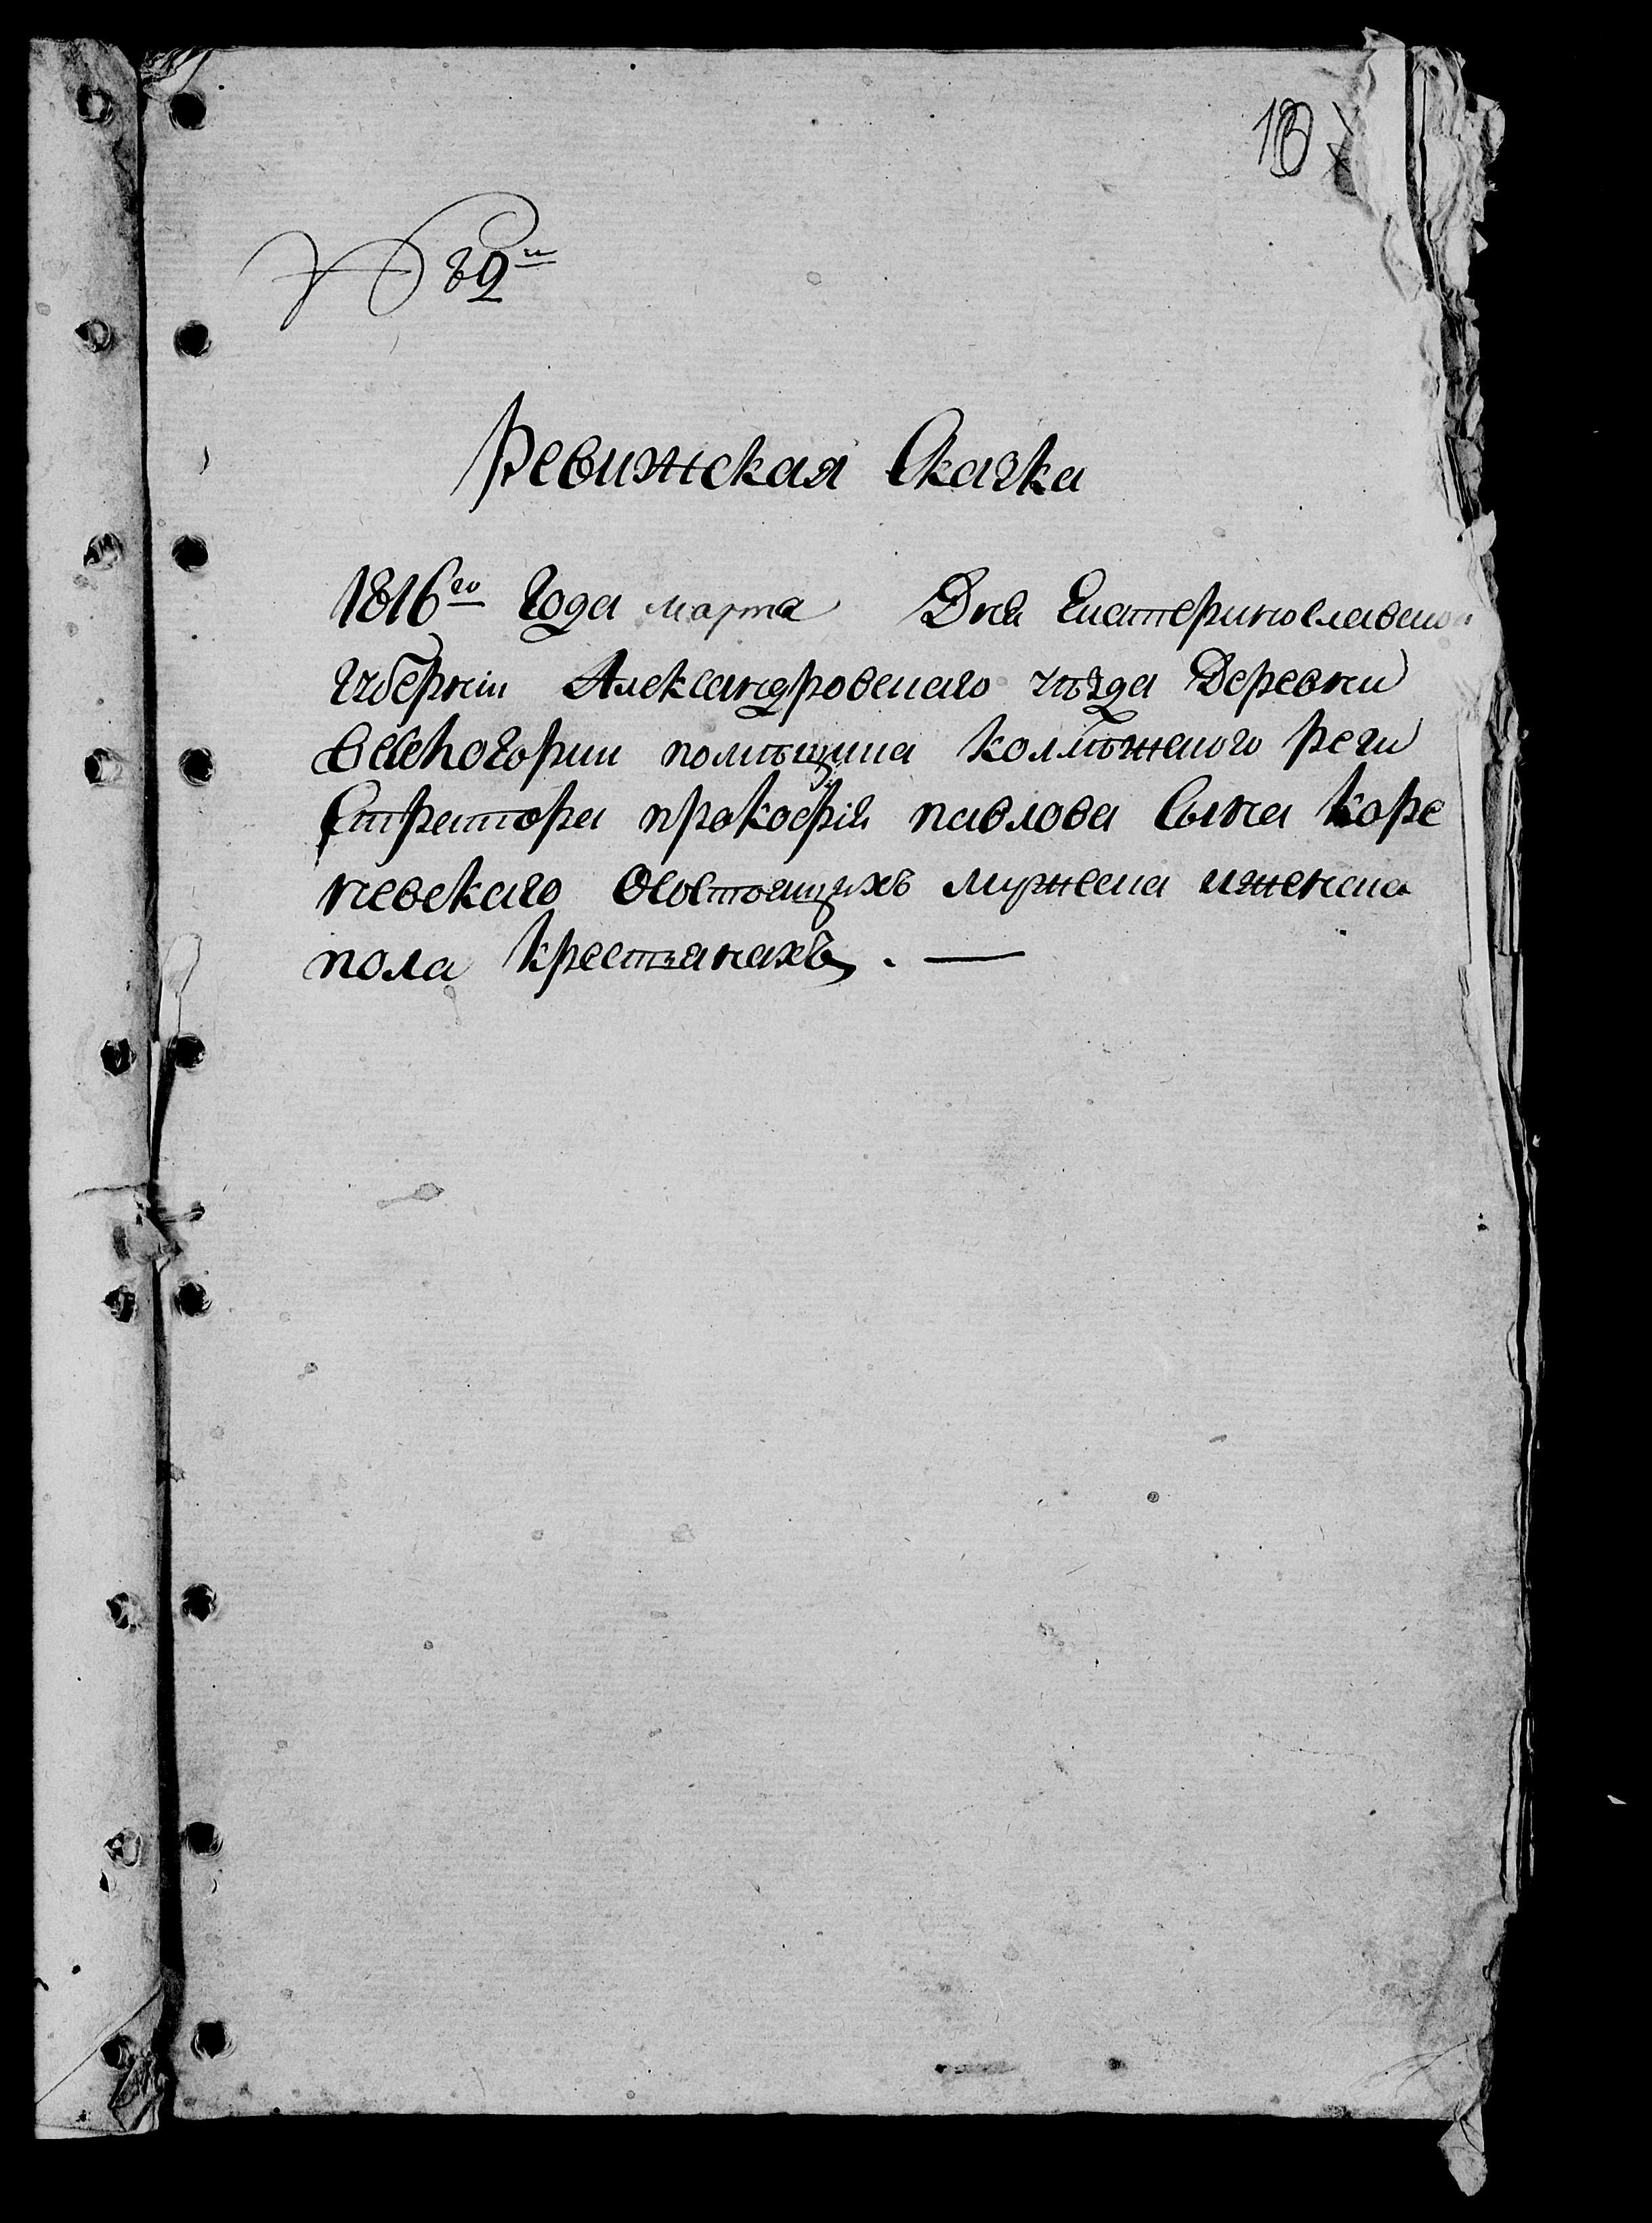 № 82й
Ревижская Сказка
1816го Года марта Дня Екатеринославской
губернiи Александровскаго уѣзда Деревни
Веселогории помѣщика Коллѣжского реги
Стратора прокофiя павлова Сына Коре
невскаго Осостоящихъ мужеска иженска
пола Крестьянахъ. —